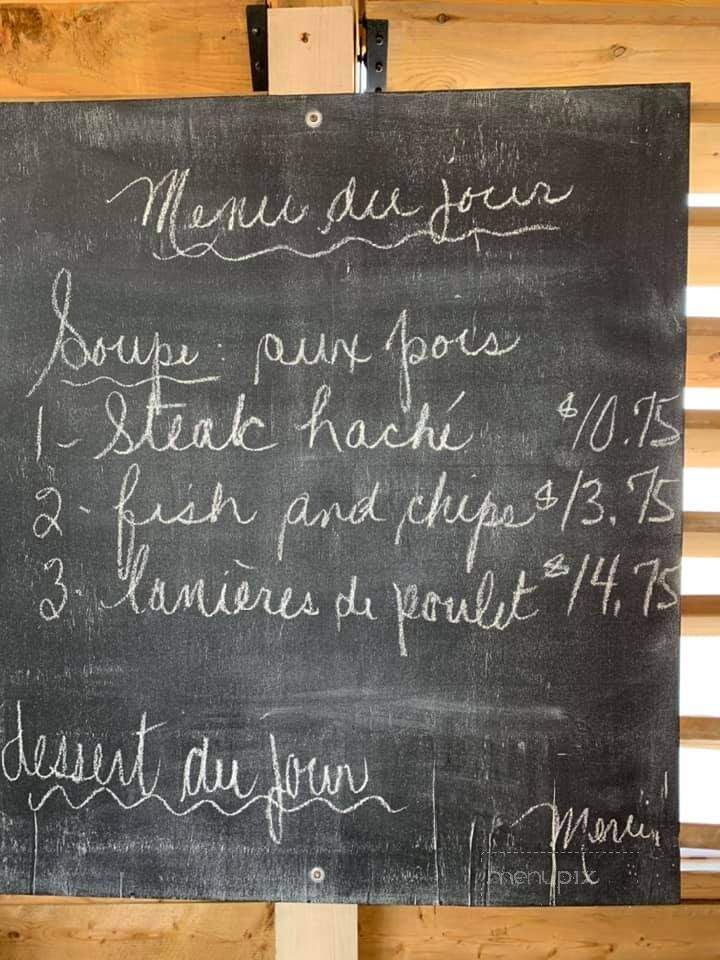 Menu du jour
Soupe : aux pois
1- Steak haché $10.75
2- fish and chips $13.75
3- lanières de poulet $14.75
dessert du jour
Merci
menupix